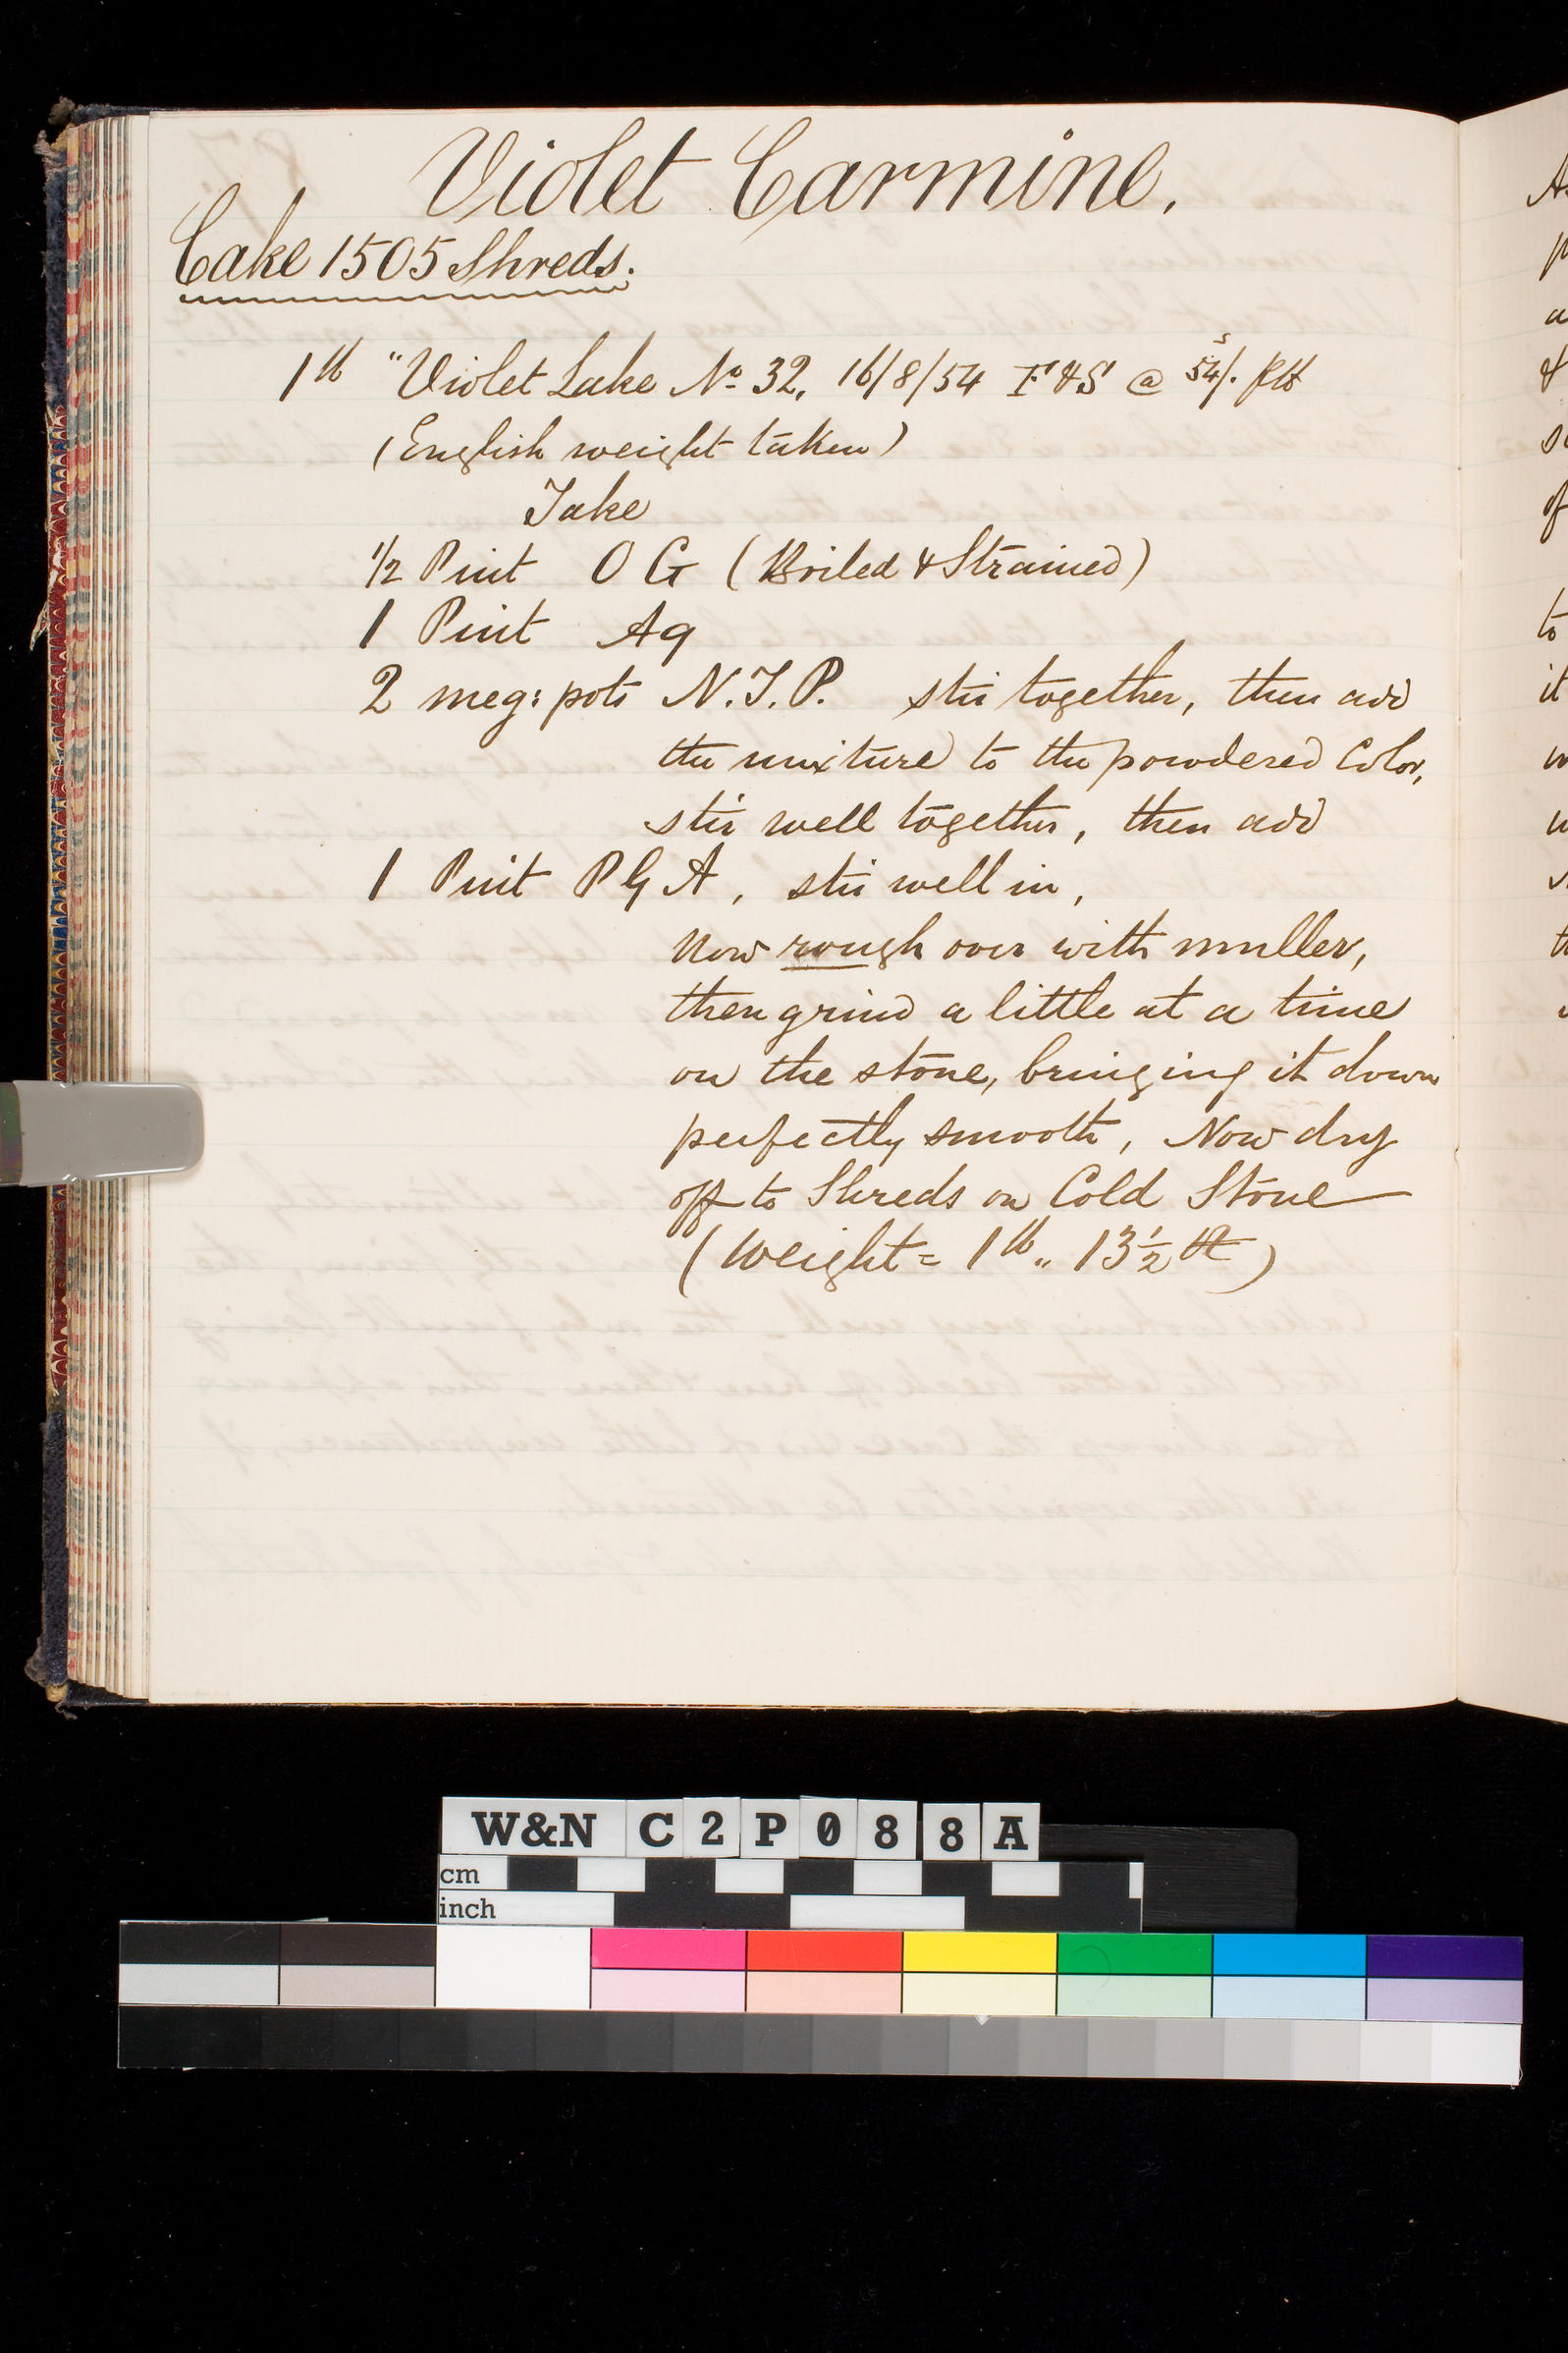 Violet Carmine.
Cake 1505 Shreds.
1 lb "Violet Lake No 32, 16/8/54 F & S @ 54/. p lb
(English weight taken)
Take
1/2 Pint O G (Boiled & Strained)
1 Pint Aq
2 meg: pots N.T.P. stir together, then add
the mixture to the powdered Color,
stir well together, then add
1 Pint P G A, stir well in,
Now rough over with muller,
then grind a little at a time
on the stone, bringing it down
perfectly smooth, Now dry
off to Shreds on Cold Stone
(Weight = 1 lb " 13 1/2
W&N C2P088A
cm
inch